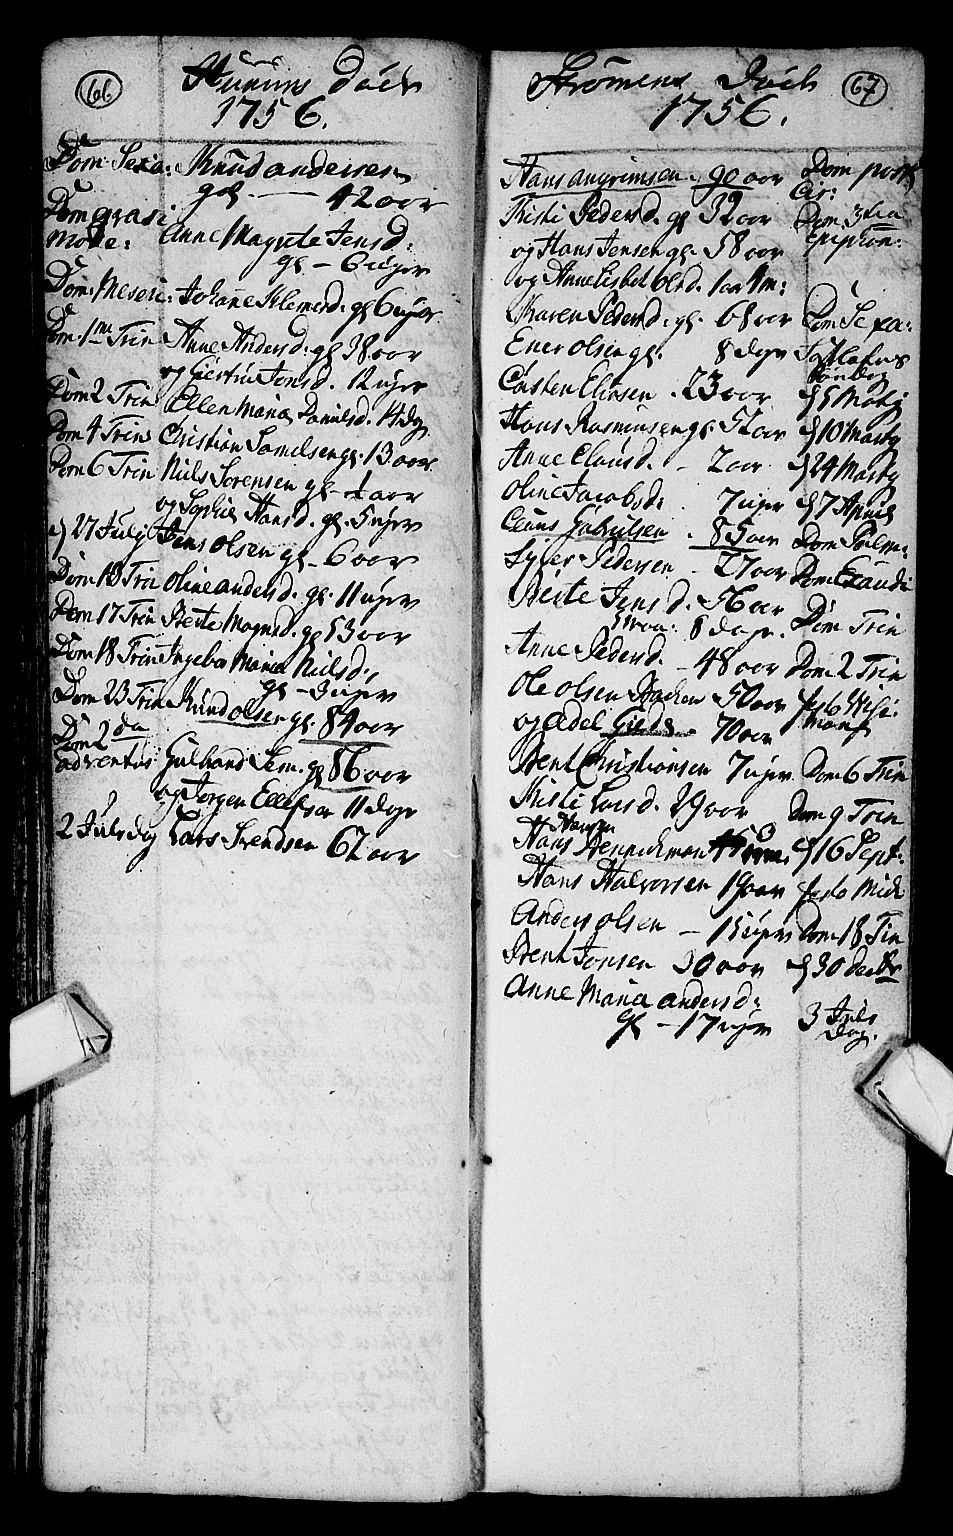 66
Hurum Död
1756.
Dom Sexa: Knud andersen
gl — 42 aar
Dom qvasi
mode: Anne Magrete Jensd:
gl – 6 uger
Dom: Meseri: Johane Klemetsd. gl 6 uger
Dom 1me Trin Anne Andersd: gl 38 aar
og Giertru Jensd. 12 uger
Dom 2 Trin Ellen Maria Danielsd. 14 dag
Dom 4 Trin Cristian Samelsen gl. 13 aar
Dom 6 Trin Niels Sörensen gl – 1 aar
og Sophie Hansd. gl. 5 uger
d 27 Julij Jens olsen gl – 6 aar
Dom 10 Trin oline andersd. gl. 11 uger
Dom 17 Trin Berte Magnusd. gl 53 aar
Dom 18 Trin Ingebor Maria Nielsd:
gl – 3 uger
Dom 23 Trin Knud olsen gl 84 aar
Dom 2 da
adventus Gulbrand Sem. gl 86 aar
og Jörgen Ellefsen 11 dage
2 Juledag Lars Svendsen 62 aar
67
Strömens Död
1756.
Hans angrimsen. 90 aar Dom post
Cir:
Kisti Pedersd. gl 32 aar Dom 3tia
Epiphan:
og Hans Jensen gl. 58 aar
og Anne Lisbet olsd. 1 aar 9 m:
Maren Pedersd. gl. 68 aar Dom Sexa:
Ener olsen gl. 8 dage Fastelafns
Söndag
Carsten Eliesen . 23 aar d 5 Martj
Hans Rasmusen gl. 52 aar d 10 Marty
Anne Clausd. – 2 aar d 24 Marty
oline Jacobsd. 7 uger d 7 April
Claus Gabrielsen . 85 aar Dom Palm:
Syver Pedersen – 27 aar Dom Exaudi
Berte Jensd. 56 aar
8 dage. Dom Trin
Anne Pedersd. – 48 aar Dom 2 Trin
Ole olsen Hachen 50 aar festo Visi:
Mariæ
og Adel – 70 aar
Bent Christiansen 7 uger Dom 6 Trin
Kisti Larsd. 29 aar Dom 9 Trin
Hans Hansen
Hennichman d 16 Sept:
Hans Halvorsen 19 aar festo Mich
Anders olsen – 15 uger Dom 18 Trin
Bent Jonsen 30 aar d 30 decbr
Anne Maria andersd:
gl – 17 uger 3 Jule
Dag.